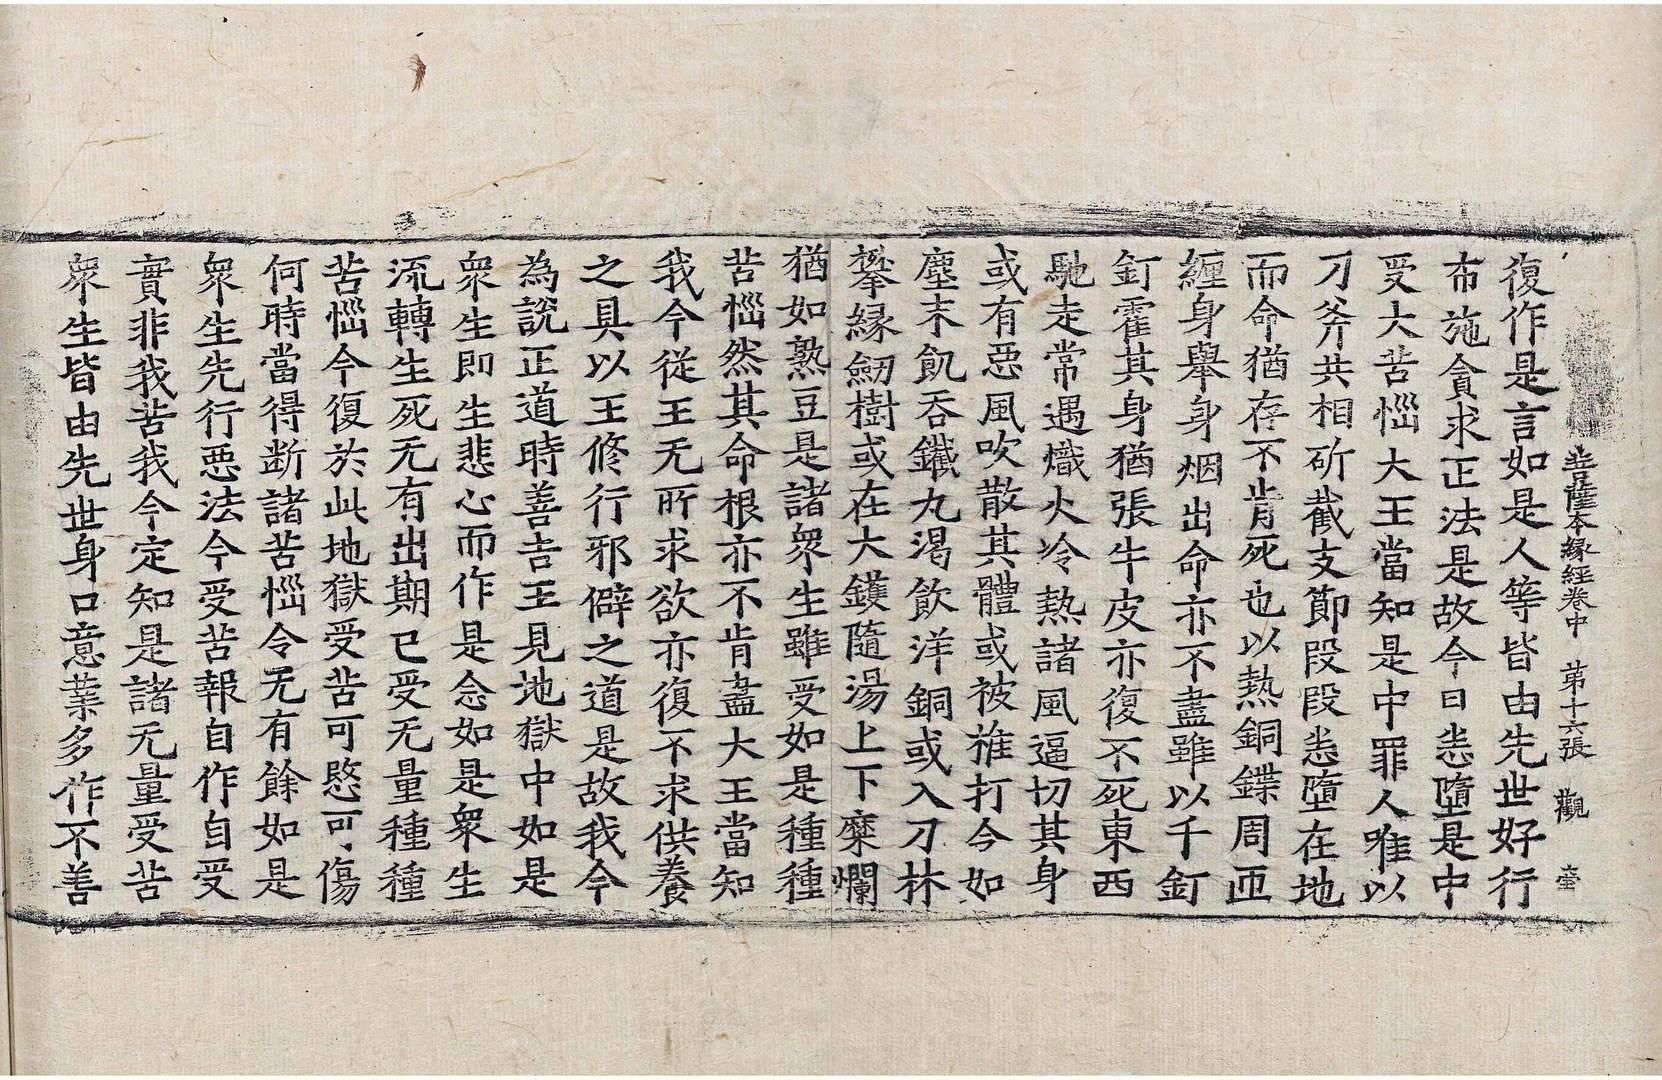 菩薩本縁經卷中 苐十六張 觀
復作是言如是人等皆由先世好行
布施貪求正法是故今日恙墮是中
受大苦惱大王當知是中罪人唯以
刀斧共相斫截支節段段恙墮在地
而命猶存不肯死也以熱銅鍱周匝
纏身舉身烟出命亦不盡雖以千釘
釘霍其身猶張牛皮亦復不死東西
馳走常遇熾火冷熱諸風逼切其身
或有惡風吹散其體或被搥打今如
塵末飢吞鐵丸渴飲洋銅或入刀林
攀縁劒樹或在大鑊隨湯上下糜爛
猶如熟豆是諸衆生雖受如是種種
苦惱然其命根亦不肯盡大王當知
我今從王无所求欲亦復不求供養
之具以王修行邪僻之道是故我今
為說正道時善吉王見地獄中如是
衆生即生悲心而作是念如是衆生
流轉生死无有出期已受无量種種
苦惱今復於此地獄受苦可愍可傷
何時當得断諸苦惱令无有餘如是
衆生先行惡法今受苦報自作自受
實非我苦我今定知是諸无量受苦
衆生皆由先世身口意業多作不善